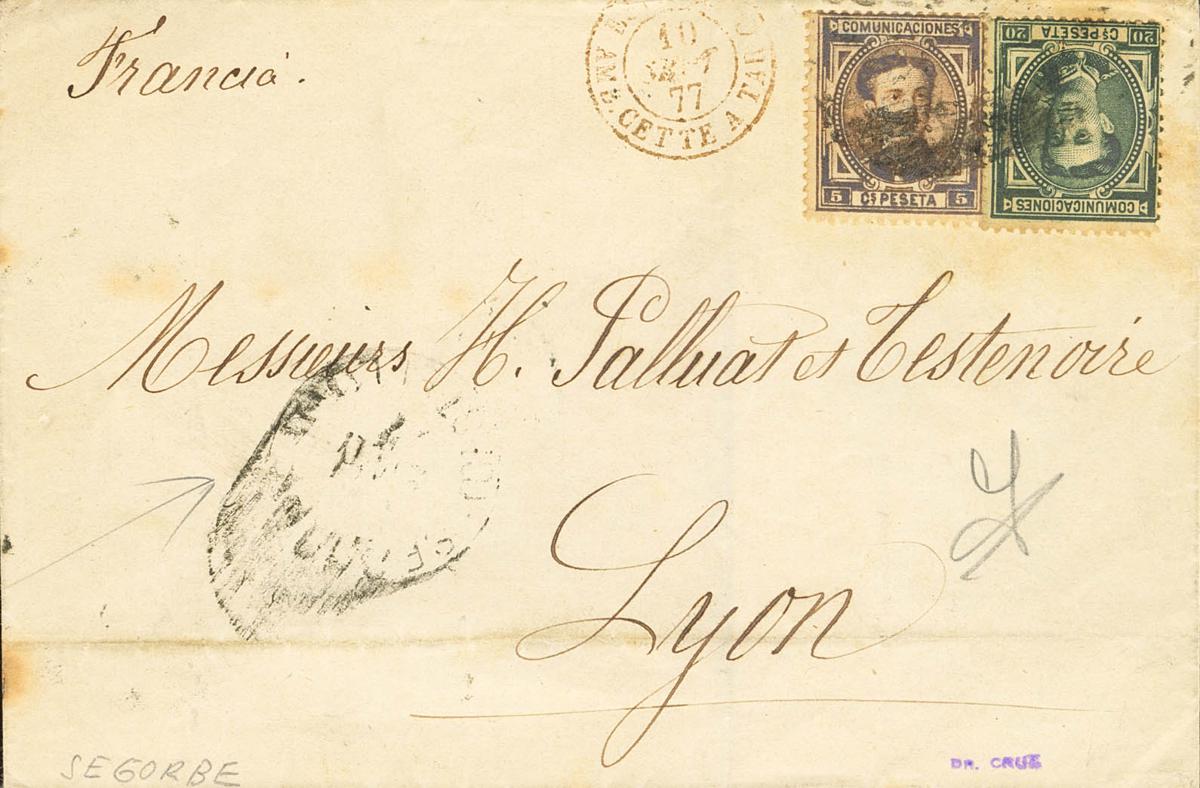 Francia.
10
77
AMB. CETTE A TA
COMUNICACIONES
5 Cs PESETA 5
20 Cs PESETA 20
COMUNICACIONES
Messieurs H. Palluat et Testenoire
Lyon
SEGORBE
DR. CRUE